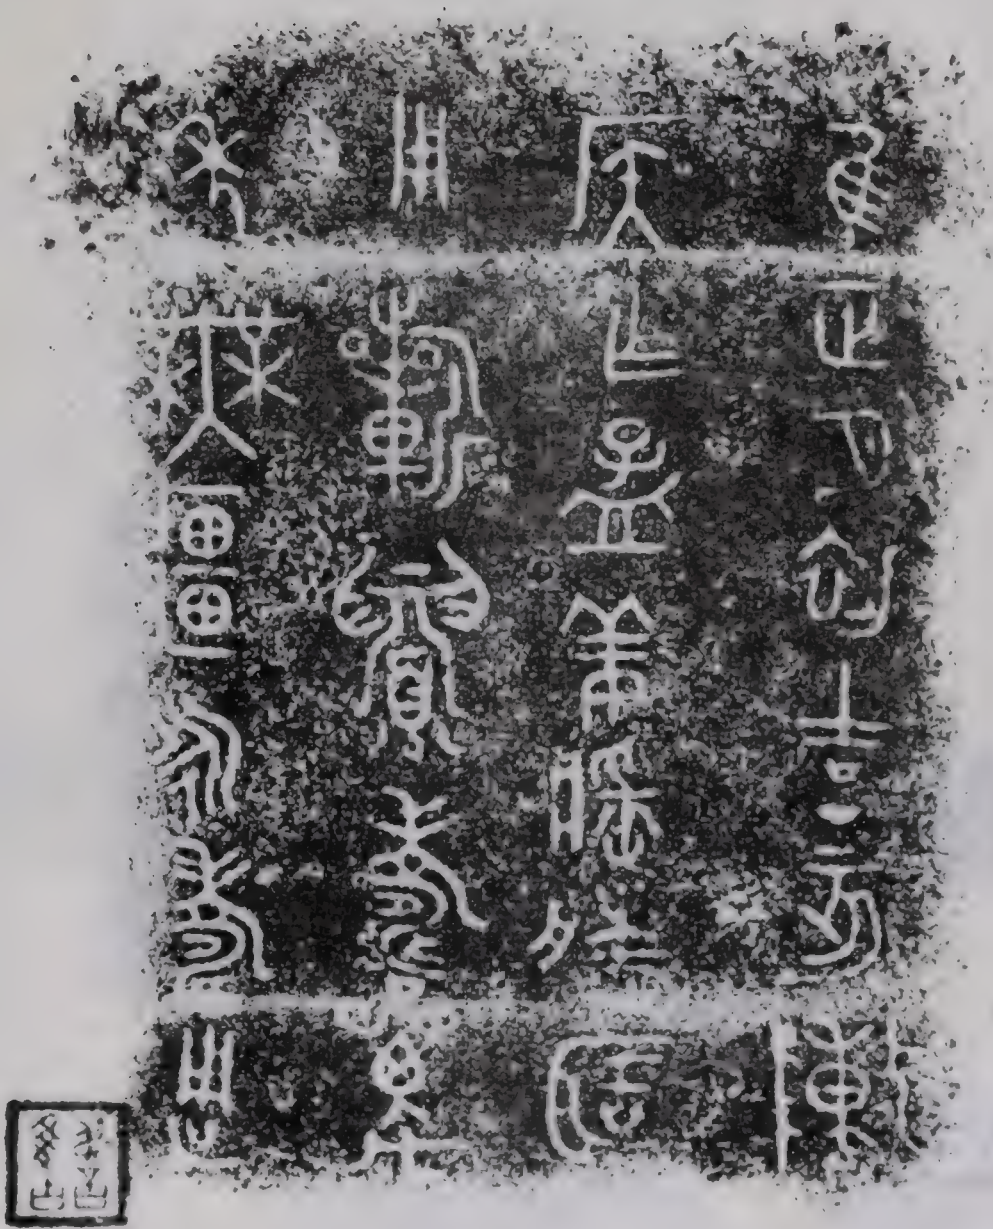 隹正月初吉丁亥陳
侯乍孟姜𠤳
用眉壽萬
年無疆永壽用之